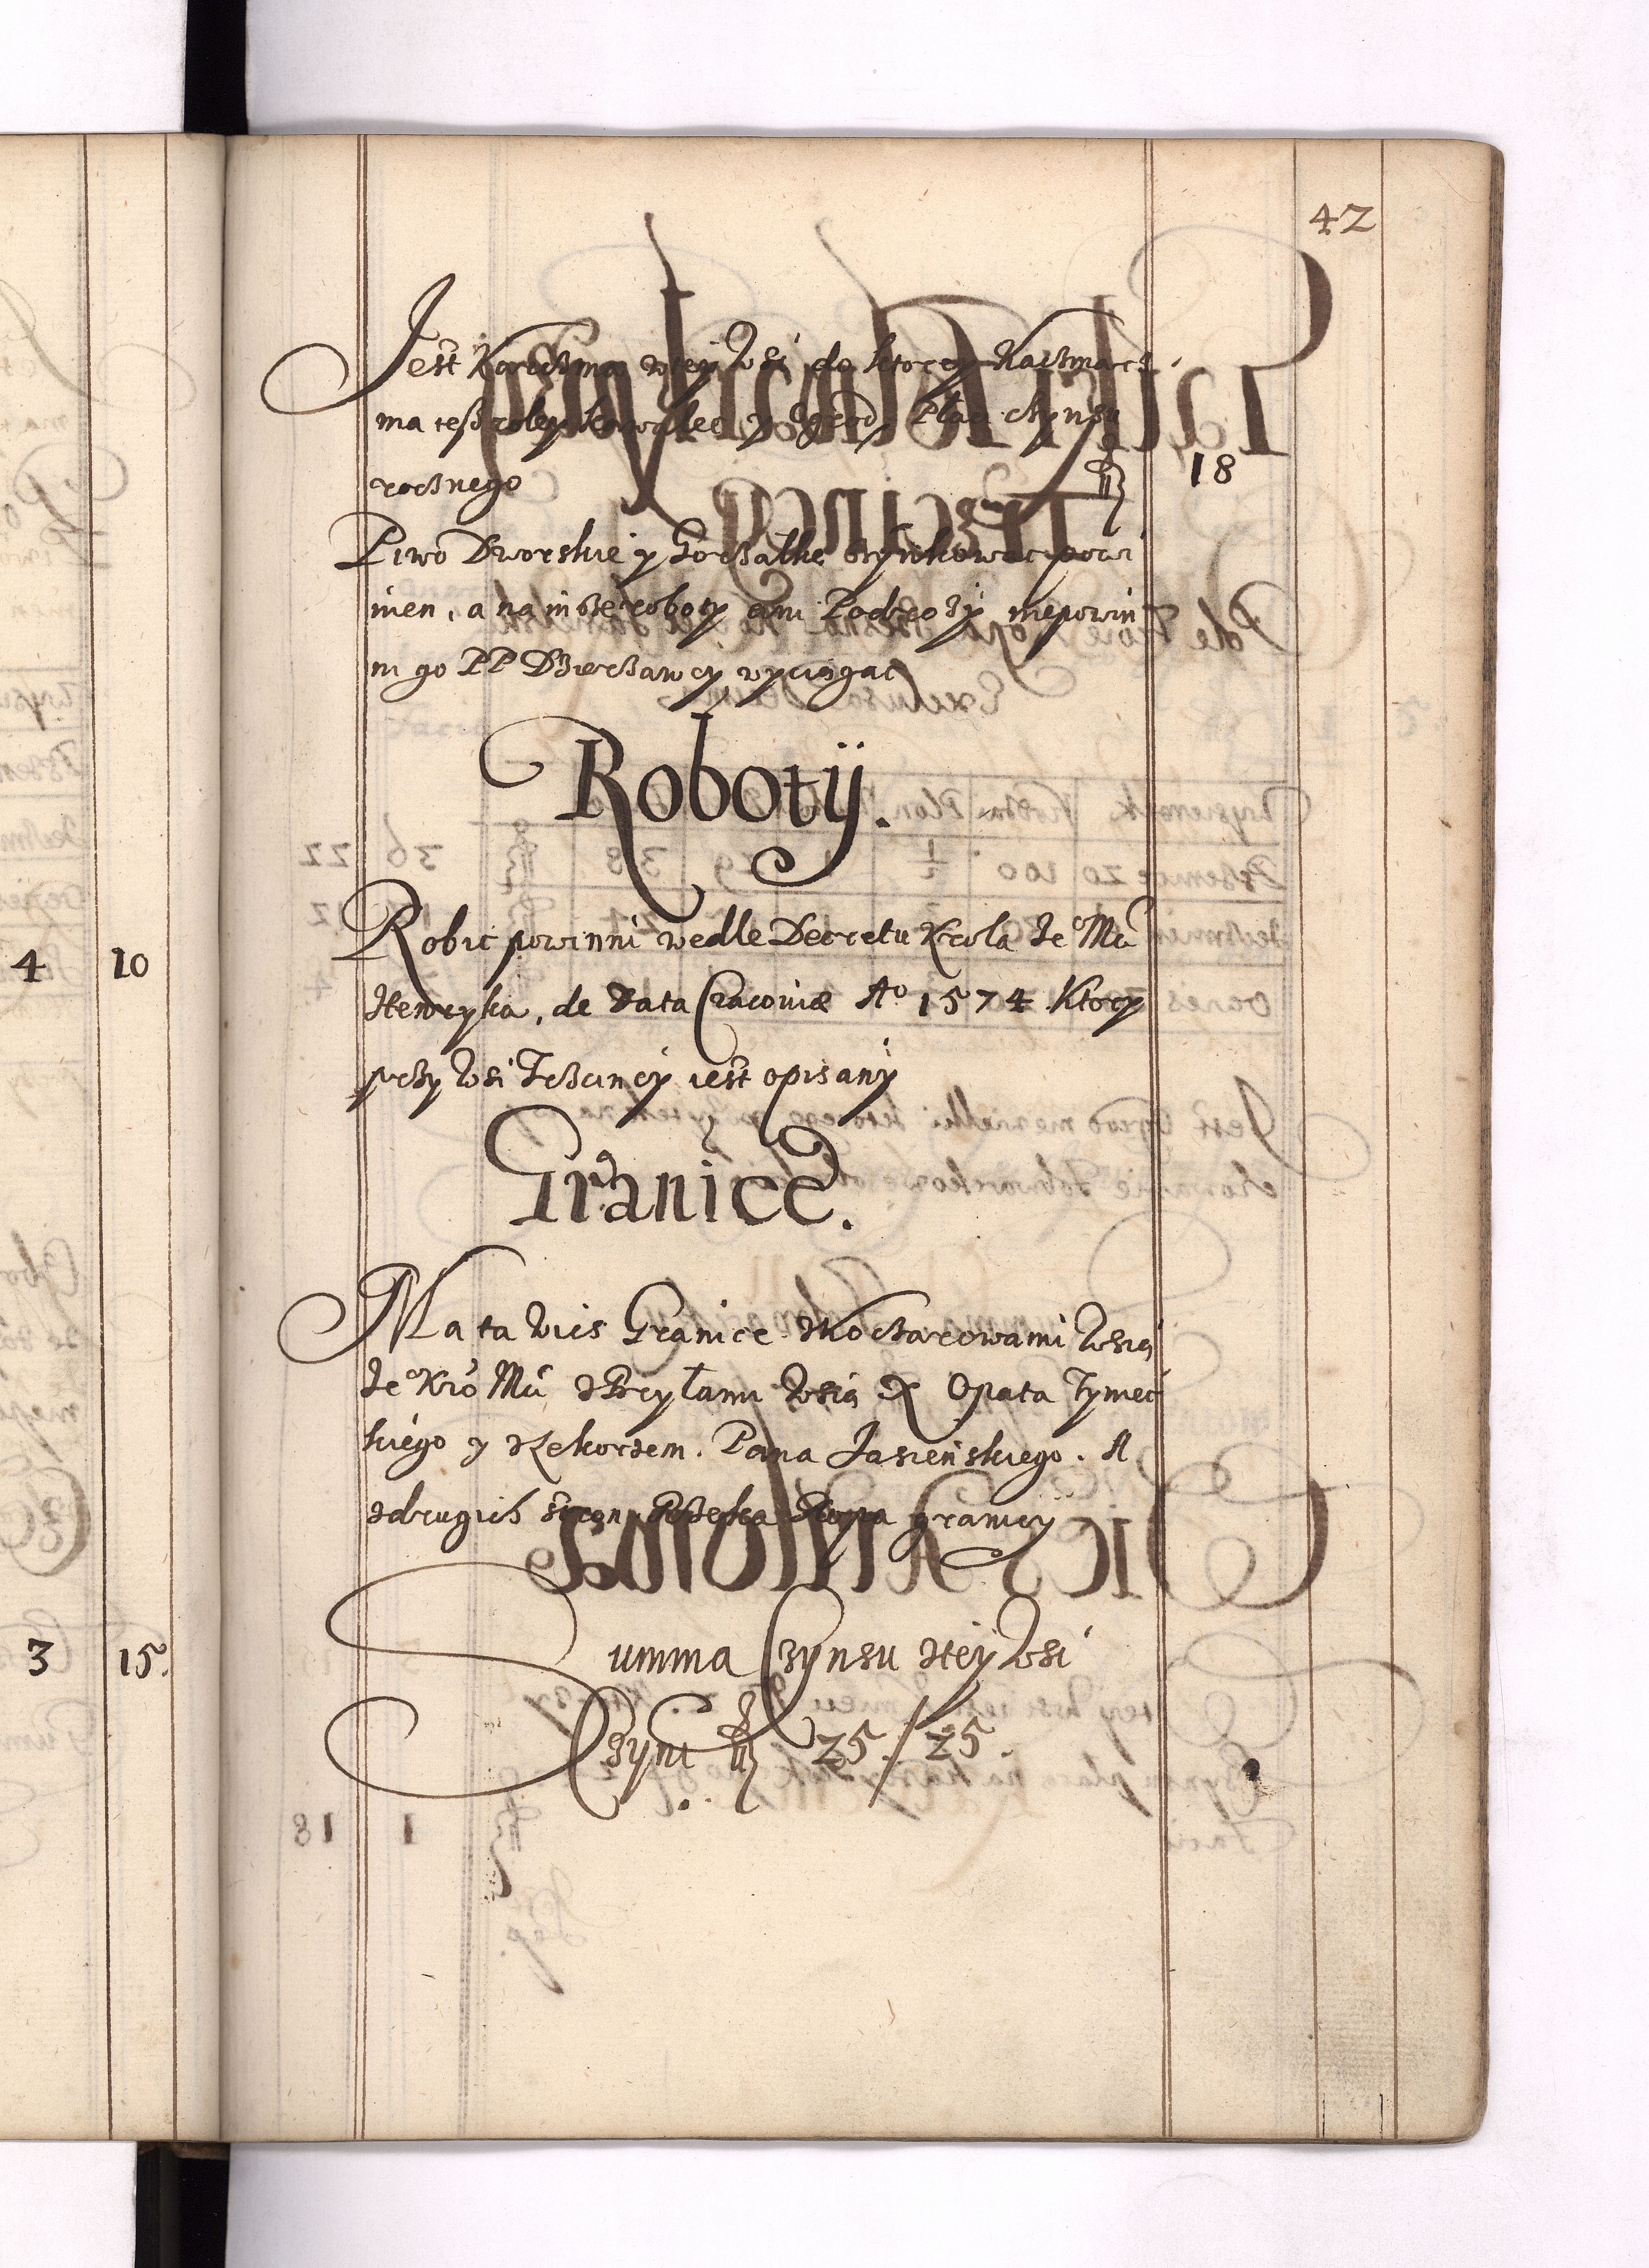 42
Jest Karczma wtey Wsi do ktorey Kaczmarz
ma tesz roley kawalec y Ogrod, Płaci Czynsu
rocznego 18
Piwo Dworskie y Gorzałkę szynkowac powi
nien, a na insze roboty ani Podrozy niepowin
ni go PP Dzierzawcy wyciągac
Robotÿ.
Robic powinni wedle Decretu Krola Je° Mći
Henryka, de Data Cracoviæ A° 1574 Ktory
przy Wsi Trzcincy iest opisany
Granice.
Ma ta Wies Granice z Koczarowami Wsią
Je° Kro Mći z Brzyłami Wsią X Opata Tyniec
kiego y z Zekorzem. Pana Jasieńskiego. A
zdrugich stron Rzeka Ropa graniczy
Summa Czynsu ztey Wsi
Czyni 25./25.
4 10
3 15.